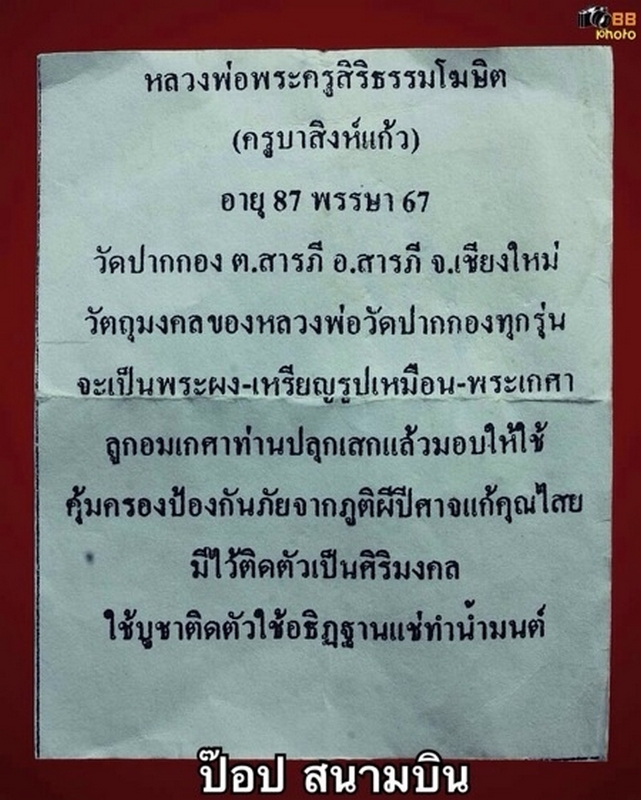 BB
photo
หลวงพ่อพระครูสิริธรรมโฆษิต
(ครูบาสิงห์แก้ว)
อายุ 87 พรรษา 67
วัดปากกอง ต.สารภี อ.สารภี จ.เชียงใหม่
วัตถุมงคลของหลวงพ่อวัดปากกองทุกรุ่น
จะเป็นพระผง-เหรียญรูปเหมือน-พระเกศา
ลูกอมเกศาท่านปลุกเสกแล้วมอบให้ใช้
คุ้มครองป้องกันภัยจากภูติผีปีศาจแก้คุณไสย
มีไว้ติดตัวเป็นศิริมงคล
ใช้บูชาติดตัวใช้อธิฏฐานแช่ทำน้ำมนต์
ป๊อป สนามบิน